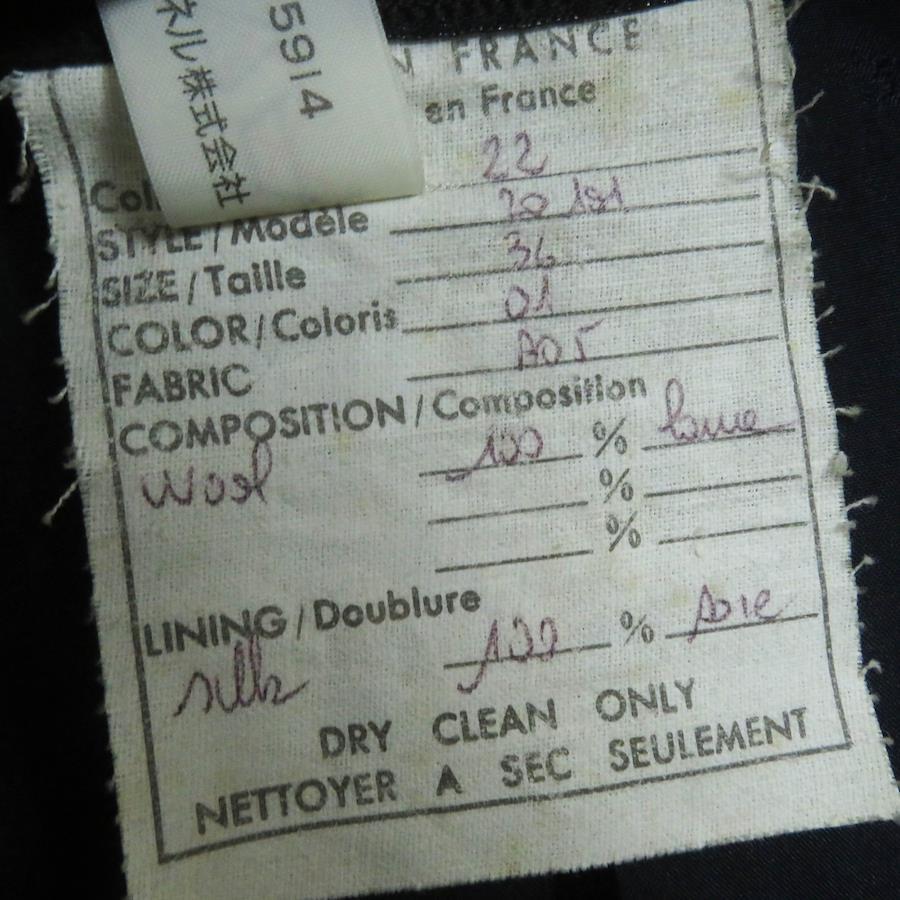 5914
ネル株式会社
N FRANCE
en France
Col 22
STYLE/Modèle 20 181
SIZE/Taille 36
COLOR/Coloris 01
FABRIC A05
COMPOSITION/Composition
Wool 100 % laine
%
%
LINING/Doublure
silk 100 % soie
DRY CLEAN ONLY
NETTOYER A SEC SEULEMENT